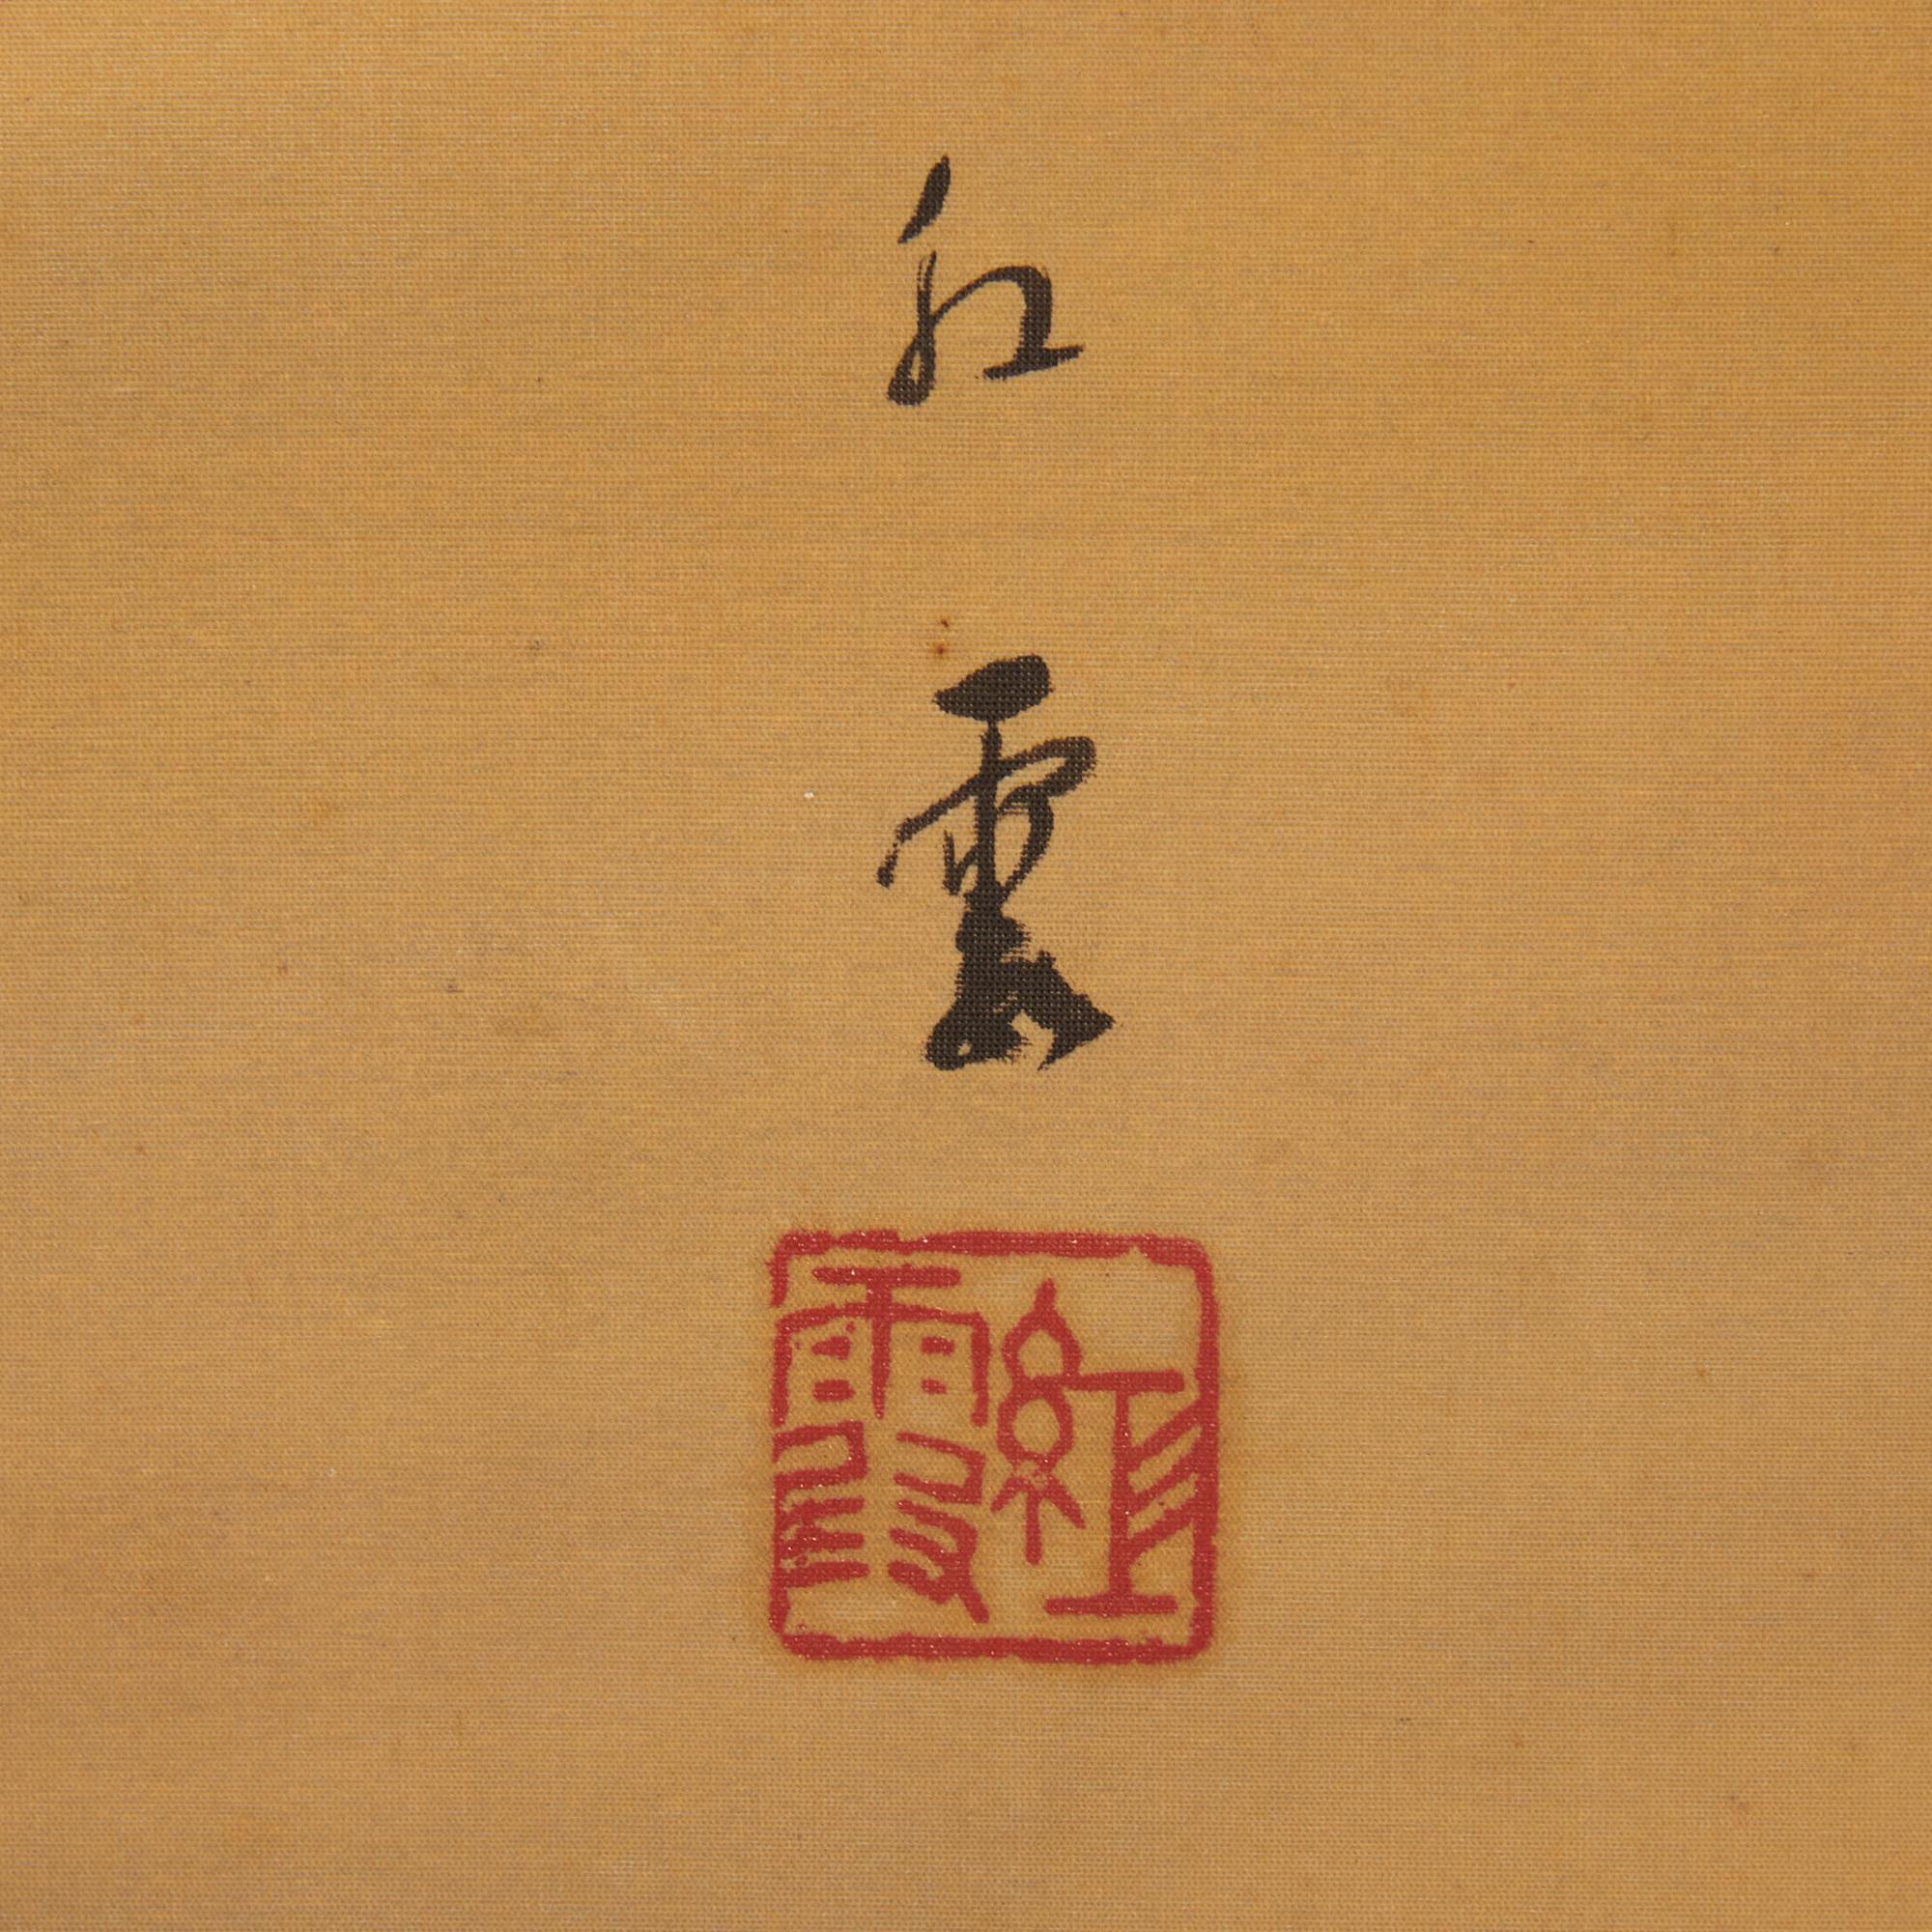 紅霞
紅霞